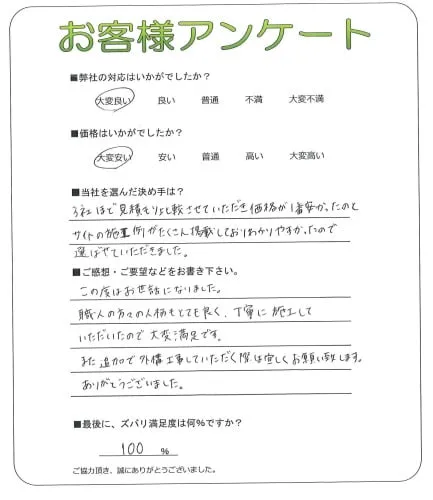 お客様アンケート
■弊社の対応はいかがでしたか？
大変良い　良い　普通　不満　大変不満
■価格はいかがでしたか？
大変安い　安い　普通　高い　大変高い
■当社を選んだ決め手は？
3社ほど見積もり比較させていただき価格が1番安かったのと
サイトの施工例がたくさん掲載しておりわかりやすかったので
選ばせていただきました。
■ご感想・ご要望などをお書き下さい。
この度はお世話になりました。
職人の方々の人柄もとても良く、丁寧に施工して
いただいたので大変満足です。
また追加で外構工事していただく際は宜しくお願い致します。
ありがとうございました。
■最後に、ズバリ満足度は何％ですか？
100 %
ご協力頂き、誠にありがとうございました。